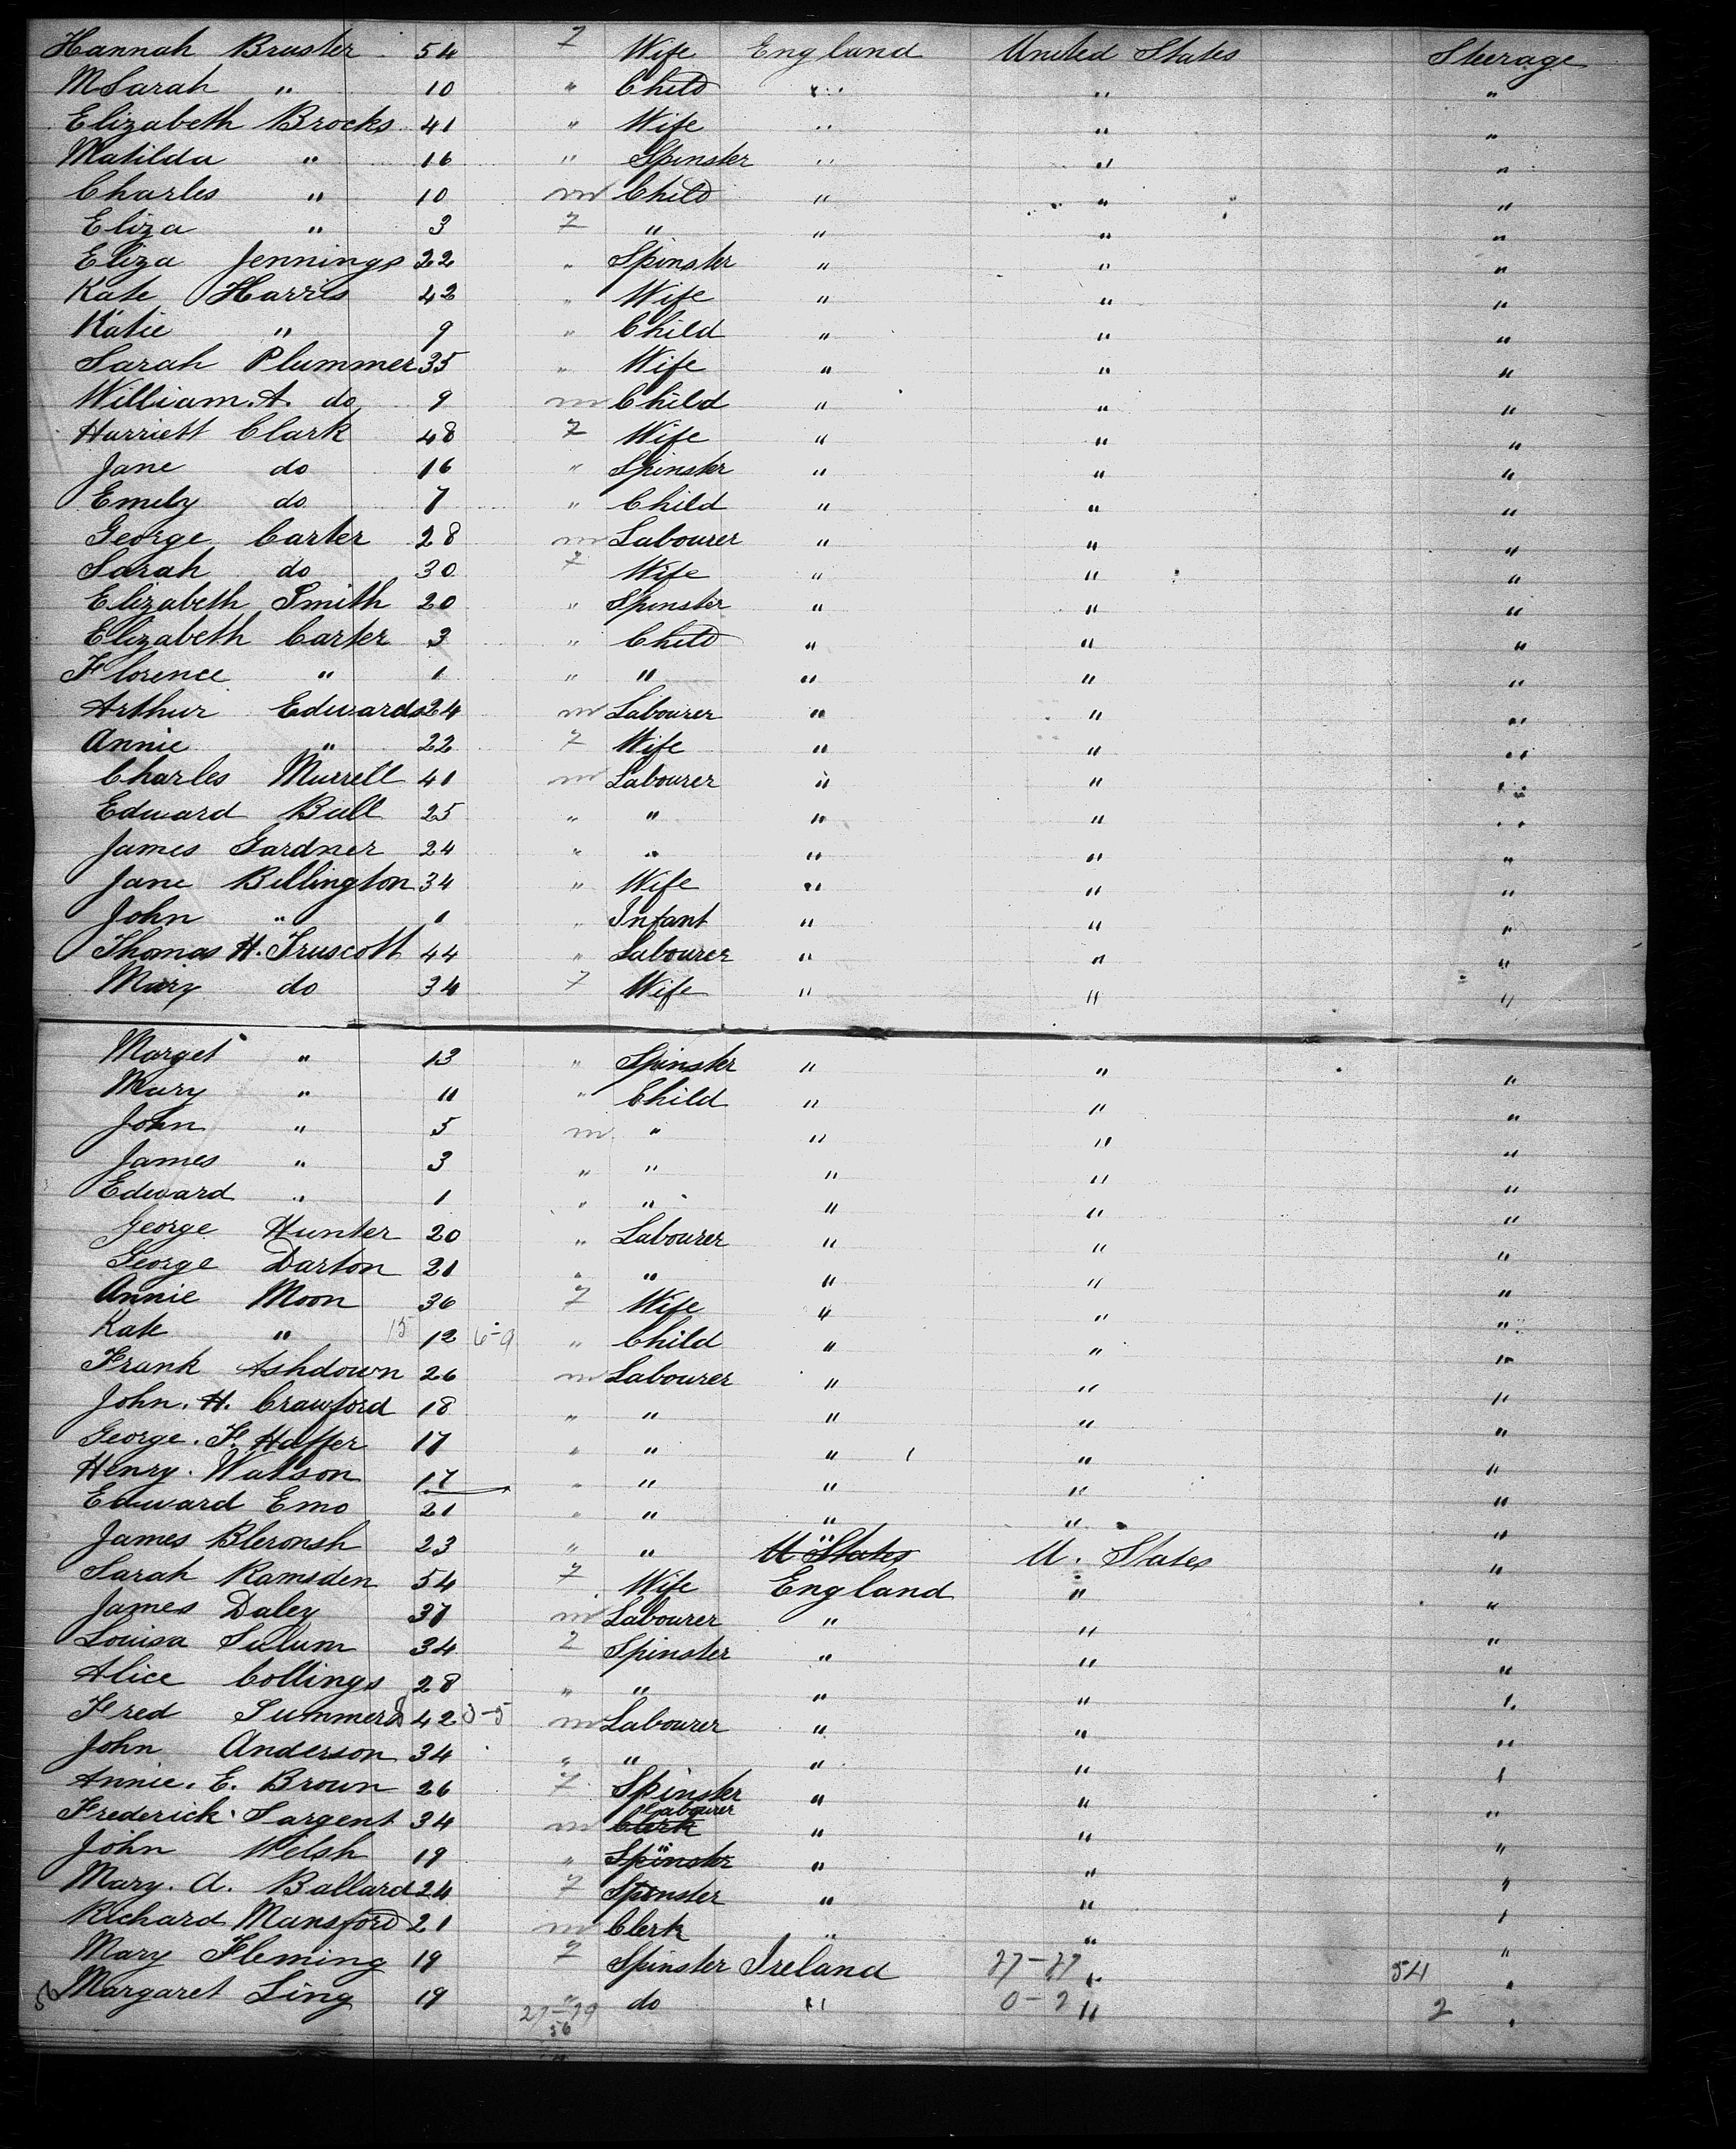 Hannah Bruster 54 7 Wife England United States Steerage
M Sarah " 10 " Child " " "
Elizabeth Brocks 41 " Wife " " "
Matilda " 16 " Spinster " " "
Charles " 10 m Child " " "
Eliza " 3 7 " " " "
Eliza Jennings 22 " Spinster " " "
Kate Harris 42 " Wife " " "
Katie " 9 " Child " " "
Sarah Plummer 35 " Wife " " "
William. A. do 9 m Child " " "
Harriett Clark 48 7 Wife " " "
Jane do 16 " Spinster " " "
Emily do 7 " Child " " "
George Carter 28 m Labourer " " "
Sarah do 30 7 Wife " " "
Elizabeth Smith 20 " Spinster " " "
Elizabeth Carter 3 " Child " " "
Florence " 1 " " " " "
Arthur Edwards 24 m Labourer " " "
Annie " 22 7 Wife " " "
Charles Murrell 41 m Labourer " " "
Edward Ball 25 " " " " "
James Gardner 24 " " " " "
Jane Billington 34 " Wife " " "
John " 1 " Infant " " "
Thomas H. Truscott 44 " Labourer " " "
Mary do 34 7 Wife " " "
Marget " 13 " Spinster " " "
Mary " 11 " Child " " "
John " 5 m " " " "
James " 3 " " " " "
Edward " 1 " " " " "
George Hunter 20 " Labourer " " "
George Darton 21 " " " " "
Annie Moon 36 7 Wife " " "
Kate " 15 12 6-9 " Child " " "
Frank Ashdown 26 m Labourer " " "
John. H. Crawford 18 " " " " "
George. F. Haffer 17 " " " " "
Henry. Watson 17 " " " " "
Edward Emo 21 " " " " "
James 23 " " U States U. States "
Sarah Ramsden 54 7 Wife England " "
James Daley 37 m Labourer " " "
Louisa 34 7 Spinster " " "
Alice Collings 28 " " " " "
Fred Summers 42 3-5 m Labourer " " "
John Anderson 34 " " " " "
Annie. E. Brown 26 7 Spinster " " "
Frederick Sargent 34 m Clerk Labourer " " "
John Welsh 19 " Spinster " " " "
Mary. A. Ballard 24 7 Spinster " " "
Richard Mansford 21 m Clerk " " "
Mary Fleming 19 7 Spinster Ireland 27-27 " 54 "
56 Margaret Ling 19 " do " 0-2 " 2 "
27-29
56